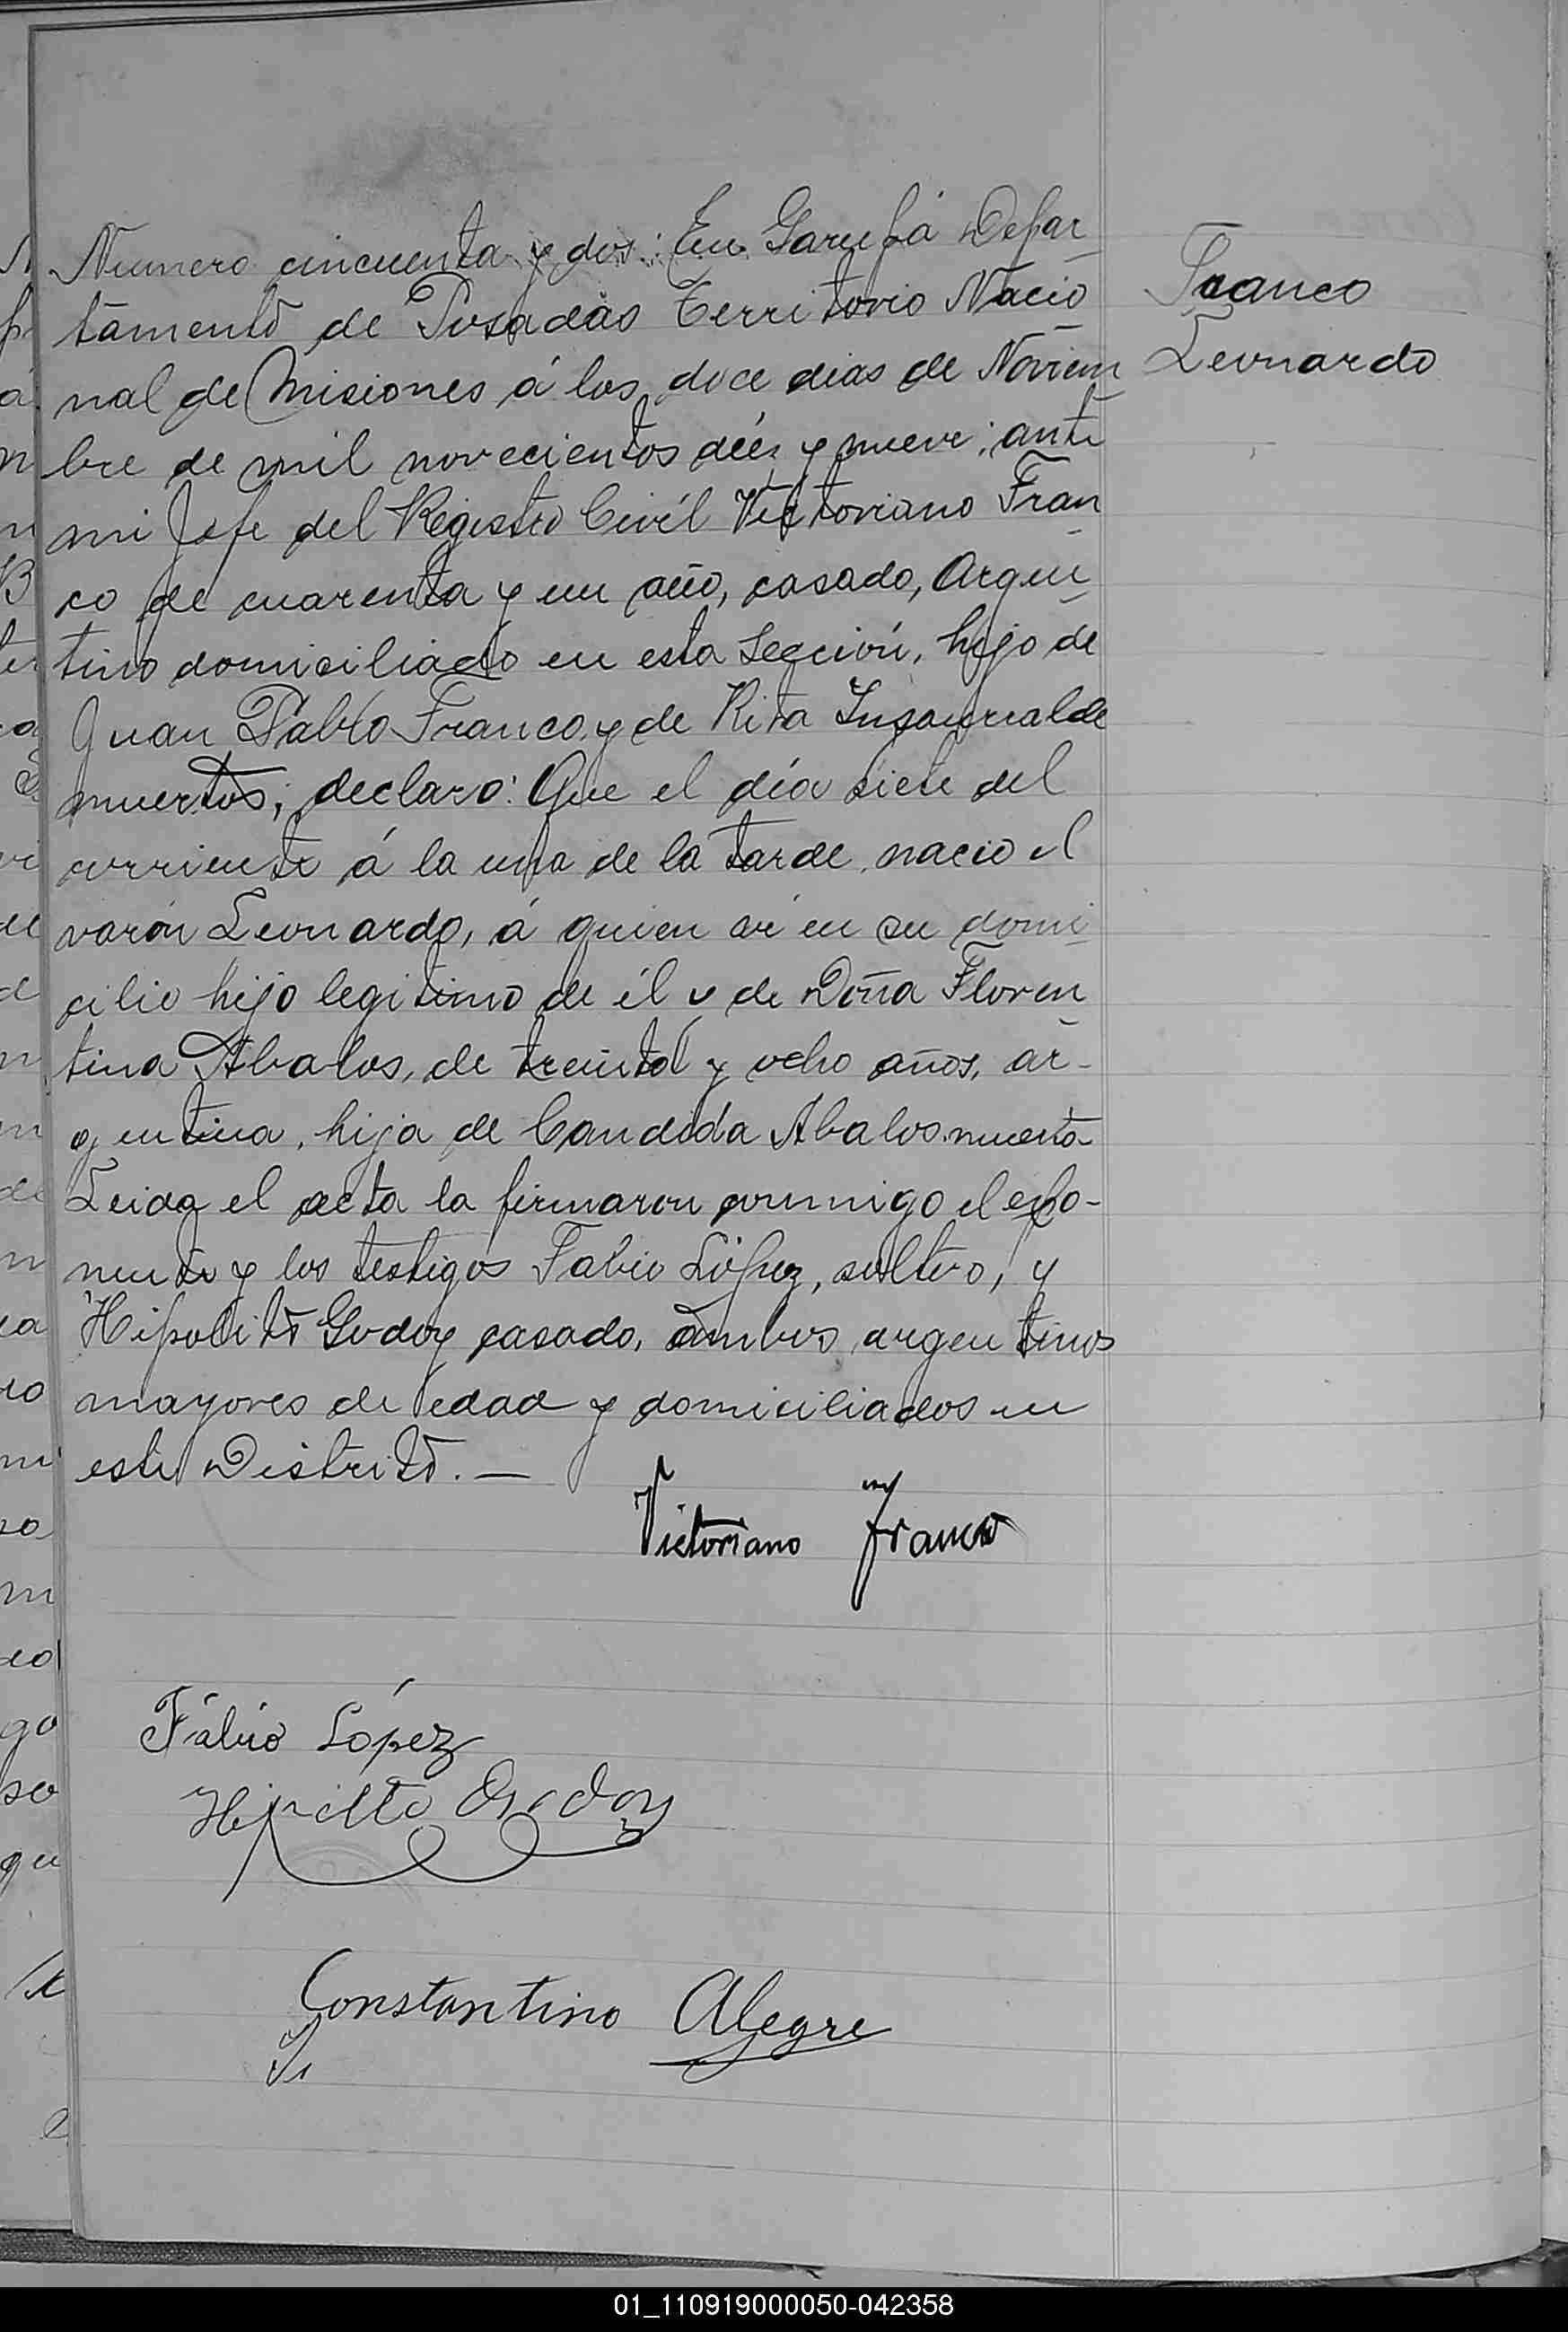 Numero cincuenta y dos: En Garupá Depar_
tamento de Posadas Territorio Nacio_
nal de Misiones á los doce dias de Noviem_
bre de mil novecientos diéz y nueve; ante
mi Jefe del Registro Civíl Victoriano Fran_
co de cuarenta y un año, casado, Argen_
tino domiciliado en esta Sección, hijo de
Juan Pablo Franco y de Rita Insaurralde
muertos; declaro: Que el día siete del
corriente á la una de la tarde nacio el
varón Leonardo, á quien ví en su domi_
cilio hijo legitimo de él y de Doña Floren_
tina Abalos, de treinta y ocho años, ar-
gentina, hija de Candida Abalos muerta
Leida el acta la firmaron conmigo el espo-
nente y los testigos Fabio López, soltero, y
Hipolito Godoy casado, ambos argentinos
mayores de edad y domiciliados en
este Distrito. —
Franco
Leonardo
Victoriano Franco
Fábio López
Hipolito Godoy
Constantino Alegre
01_110919000050-042358